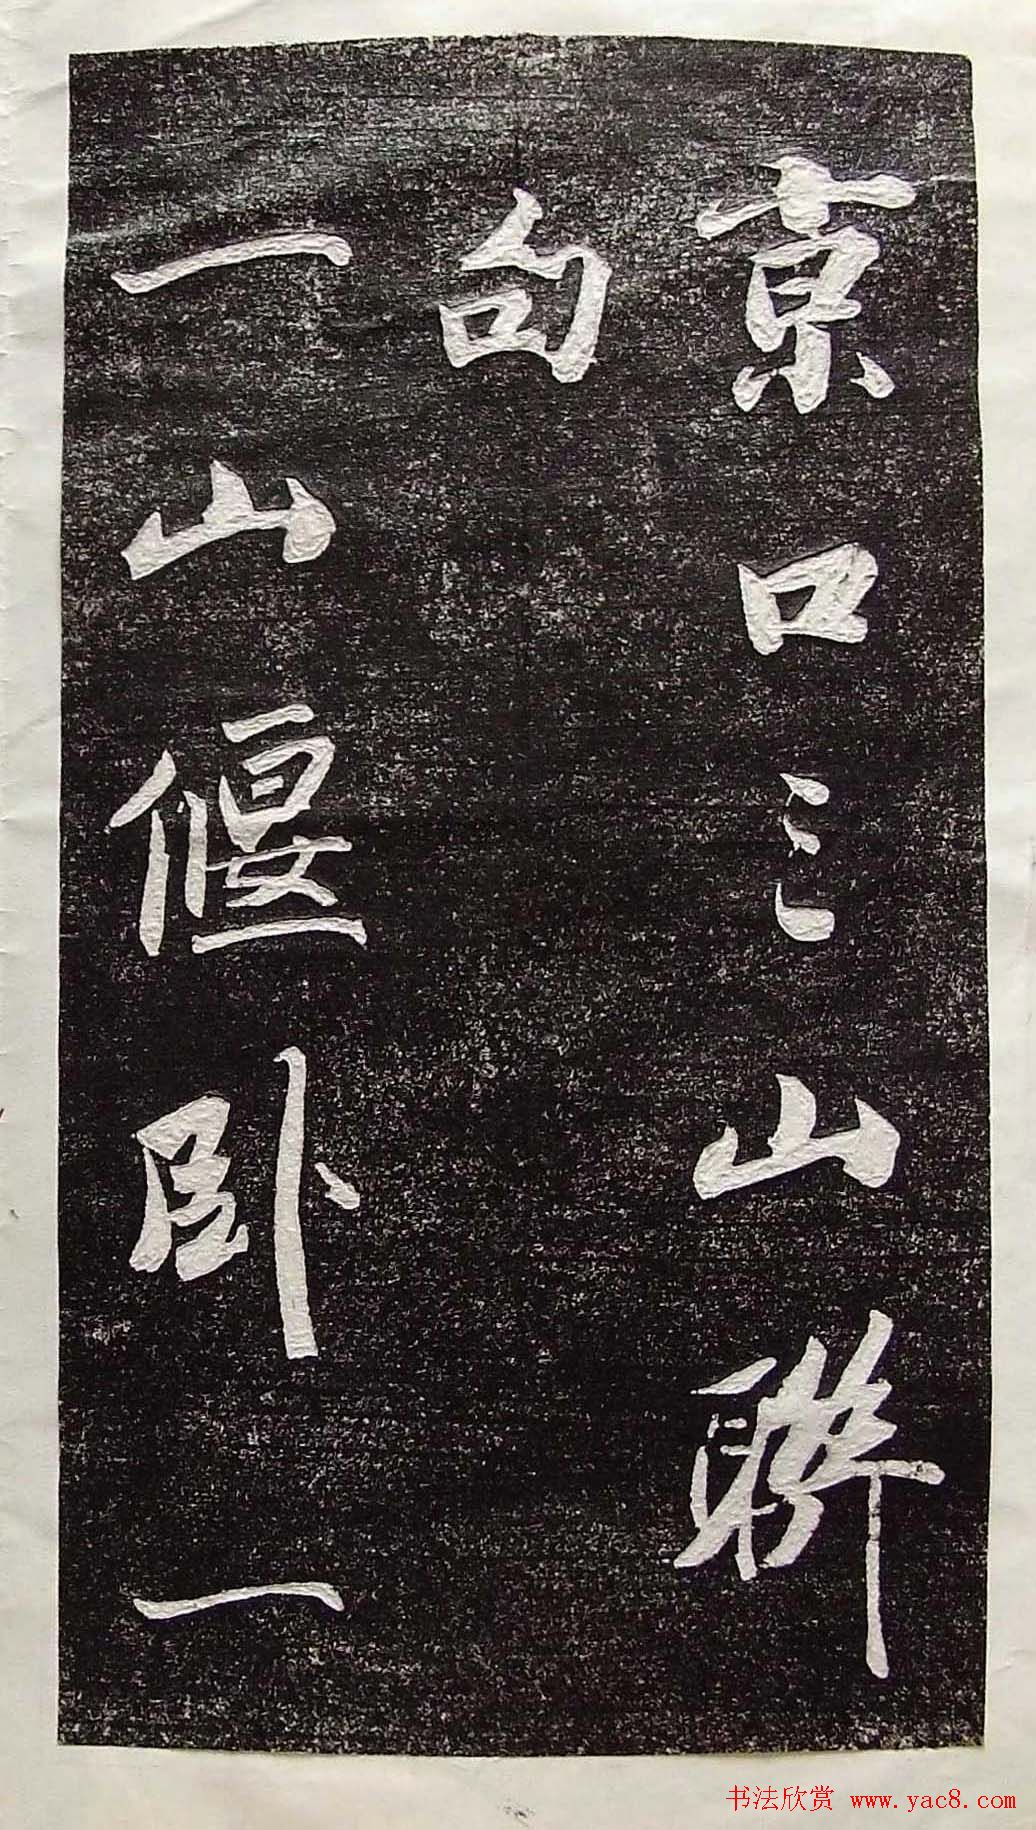 京口三山聯
句
一山偃卧一
书法欣赏 www.yac8.com